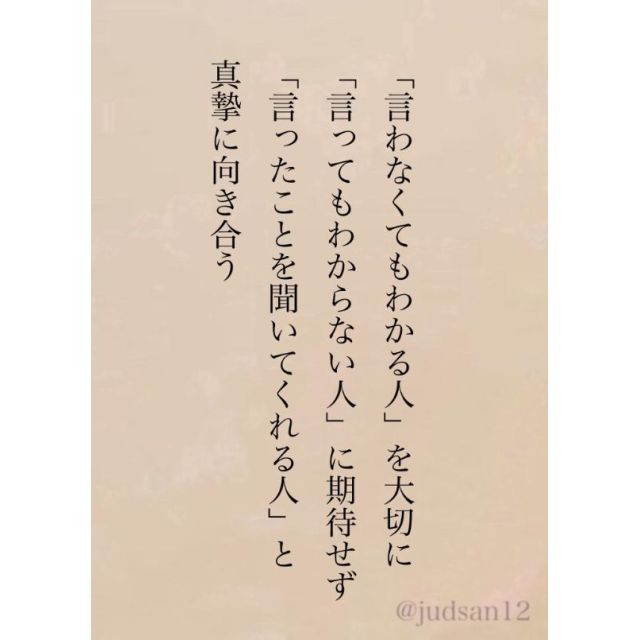 「言わなくてもわかる人」を大切に
「言ってもわからない人」に期待せず
「言ったことを聞いてくれる人」と
真摯に向き合う
@judsan12